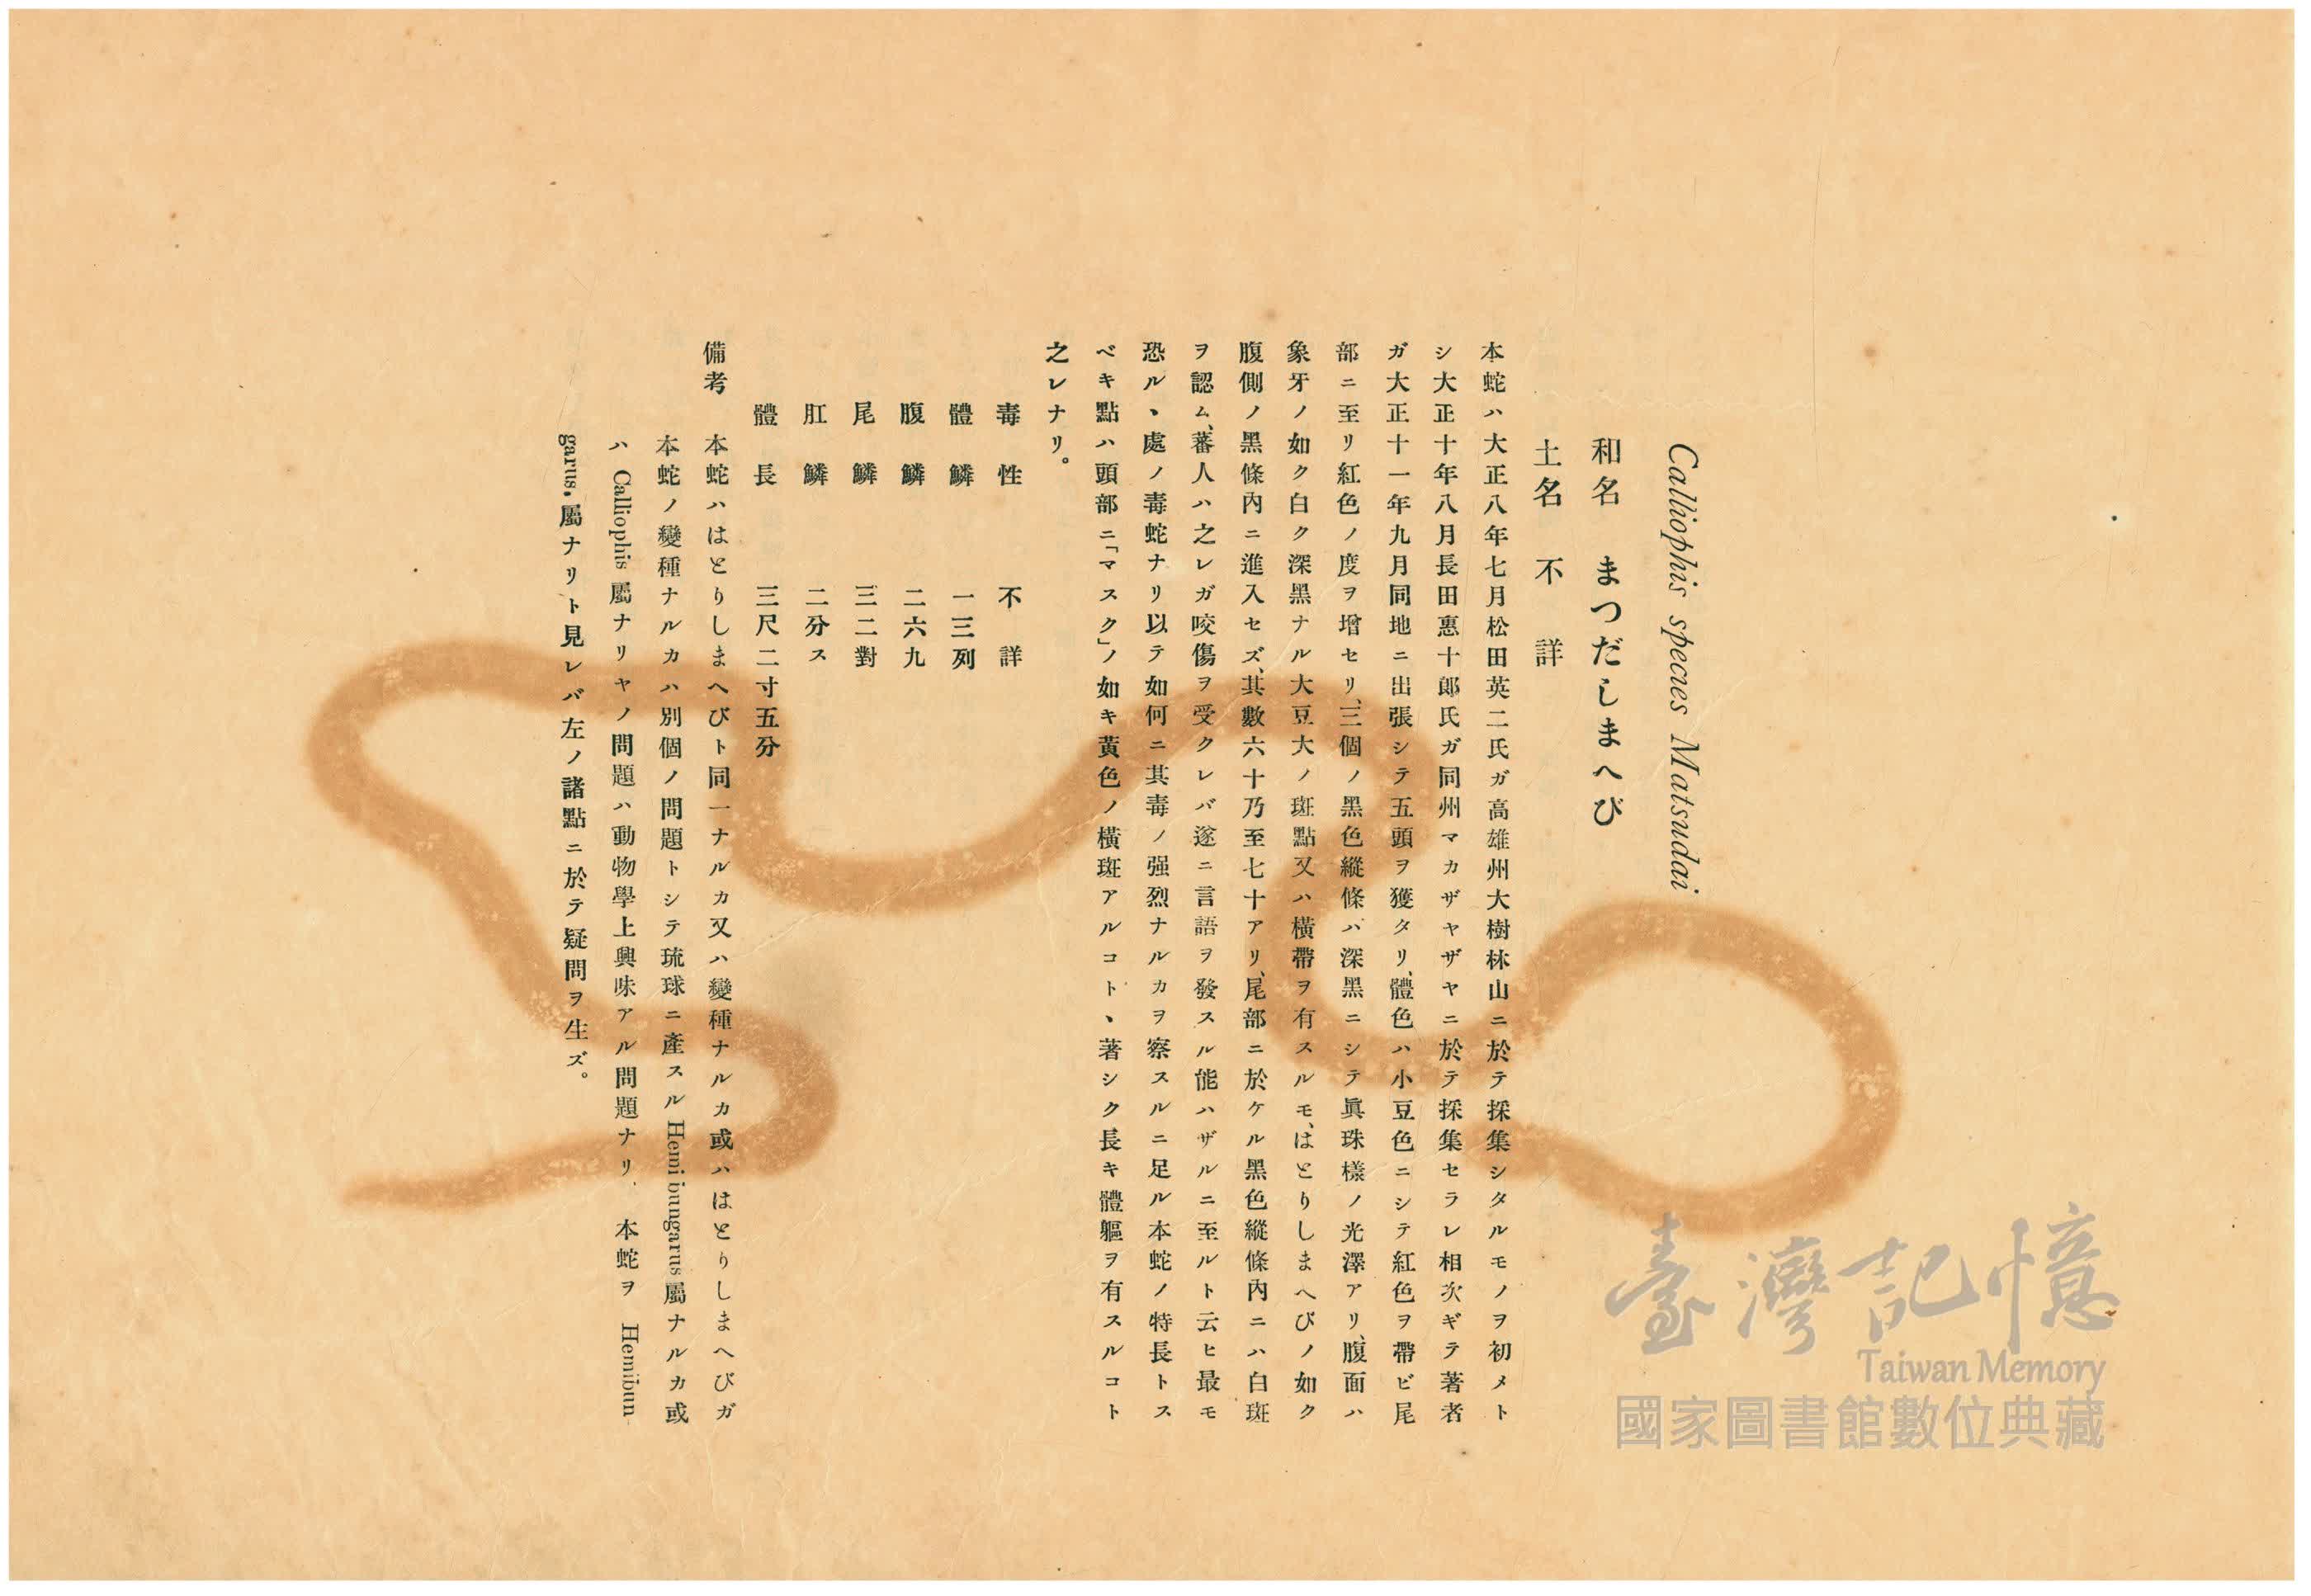 Calliophis species Matsudai
和名　まつだしまへび
土名　不　詳
本蛇ハ大正八年七月松田英二氏ガ高雄州大樹林山ニ於テ採集シタルモノヲ初メト
シ大正十年八月長田惠十郎氏ガ同州マカザヤザヤニ於テ採集セラレ相次ギテ著者
ガ大正十一年九月同地ニ出張シテ五頭ヲ獲タリ、體色ハ小豆色ニシテ紅色ヲ帶ビ尾
部ニ至リ紅色ノ度ヲ增セリ、三個ノ黑色縱條ハ深黑ニシテ眞珠樣ノ光澤アリ、腹面ハ
象牙ノ如ク白ク深黑ナル大豆大ノ斑點又ハ橫帶ヲ有スルモ、はとりしまへびノ如ク
腹側ノ黑條內ニ進入セズ、其數六十乃至七十アリ、尾部ニ於ケル黑色縱條內ニハ白斑
ヲ認ム、蕃人ハ之レガ咬傷ヲ受クレバ遂ニ言語ヲ發スル能ハザルニ至ルト云ヒ最モ
恐ル、處ノ毒蛇ナリ以テ如何ニ其毒ノ强烈ナルカヲ察スルニ足ル本蛇ノ特長トス
ベキ點ハ頭部ニ「マスク」ノ如キ黃色ノ橫斑アルコト、著シク長キ體軀ヲ有スルコト
之レナリ。
毒性　不詳
體鱗　一三列
腹鱗　二六九
尾鱗　三二對
肛鱗　二分ス
體長　三尺二寸五分
備考　本蛇ハはとりしまへびト同一ナルカ又ハ變種ナルカ或ハはとりしまへびガ
本蛇ノ變種ナルカハ別個ノ問題トシテ琉球ニ產スル Hemibungarus 屬ナルカ或
ハ Calliophis 屬ナリヤノ問題ハ動物學上興味アル問題ナリ、本蛇ヲ Hemibun-
garus. 屬ナリト見レバ左ノ諸點ニ於テ疑問ヲ生ズ。
臺灣記憶
Taiwan Memory
國家圖書館數位典藏